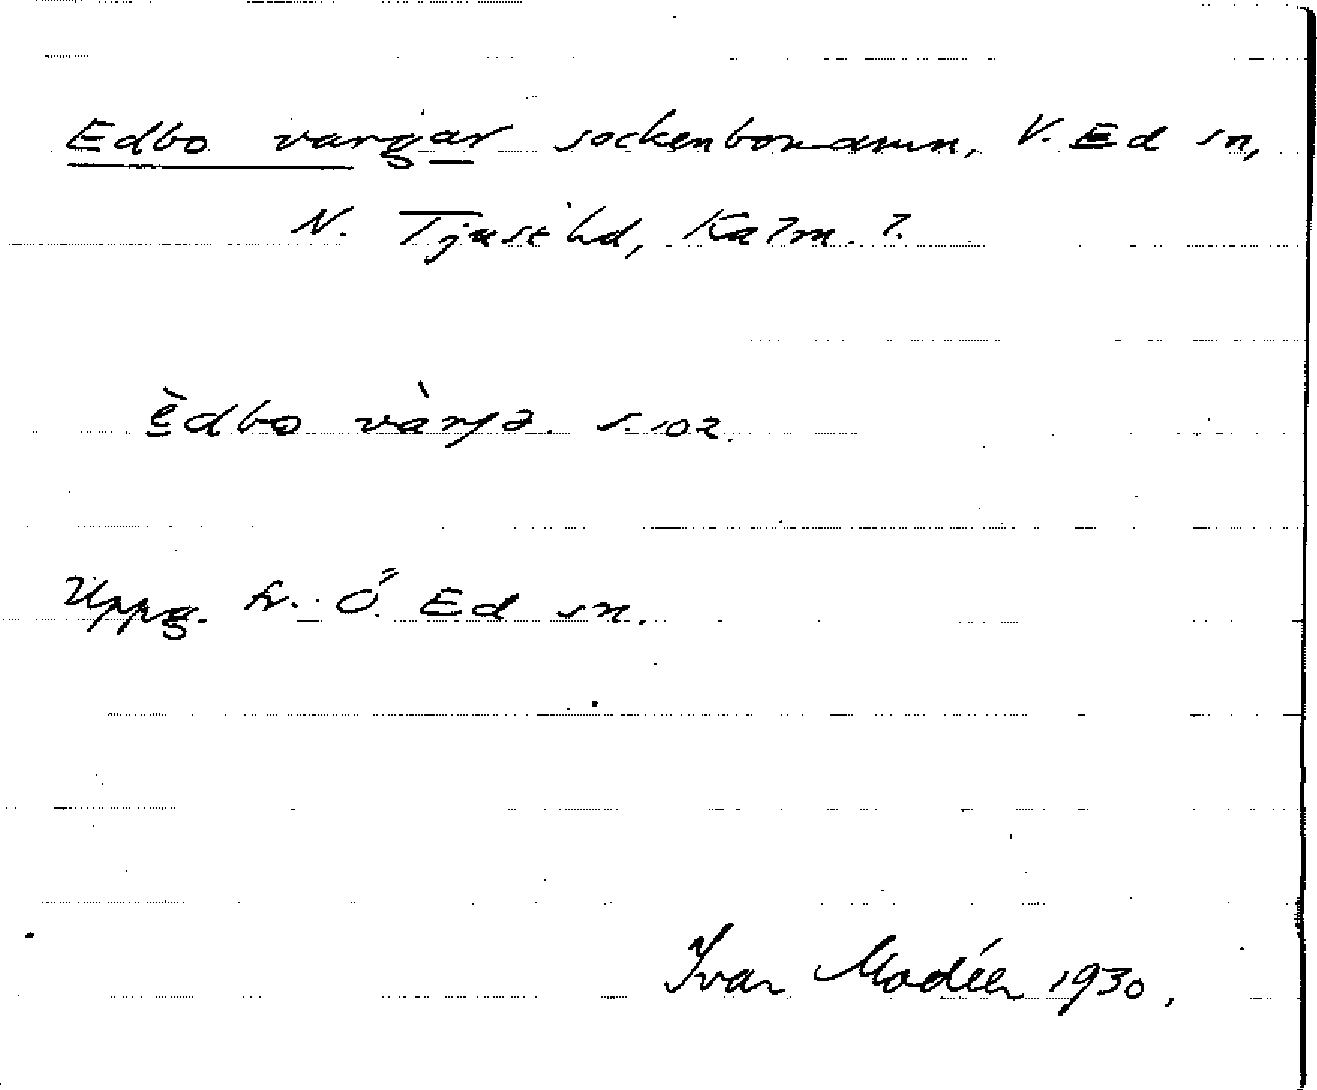 Edbo vargar sockenbonamn, V. Ed sn,
N. Tjust hd, Kalm. l.
Èdbo vàrjə. s. 102.
Uppg. fr. Ö. Ed sn.
Ivar Modéer 1930.